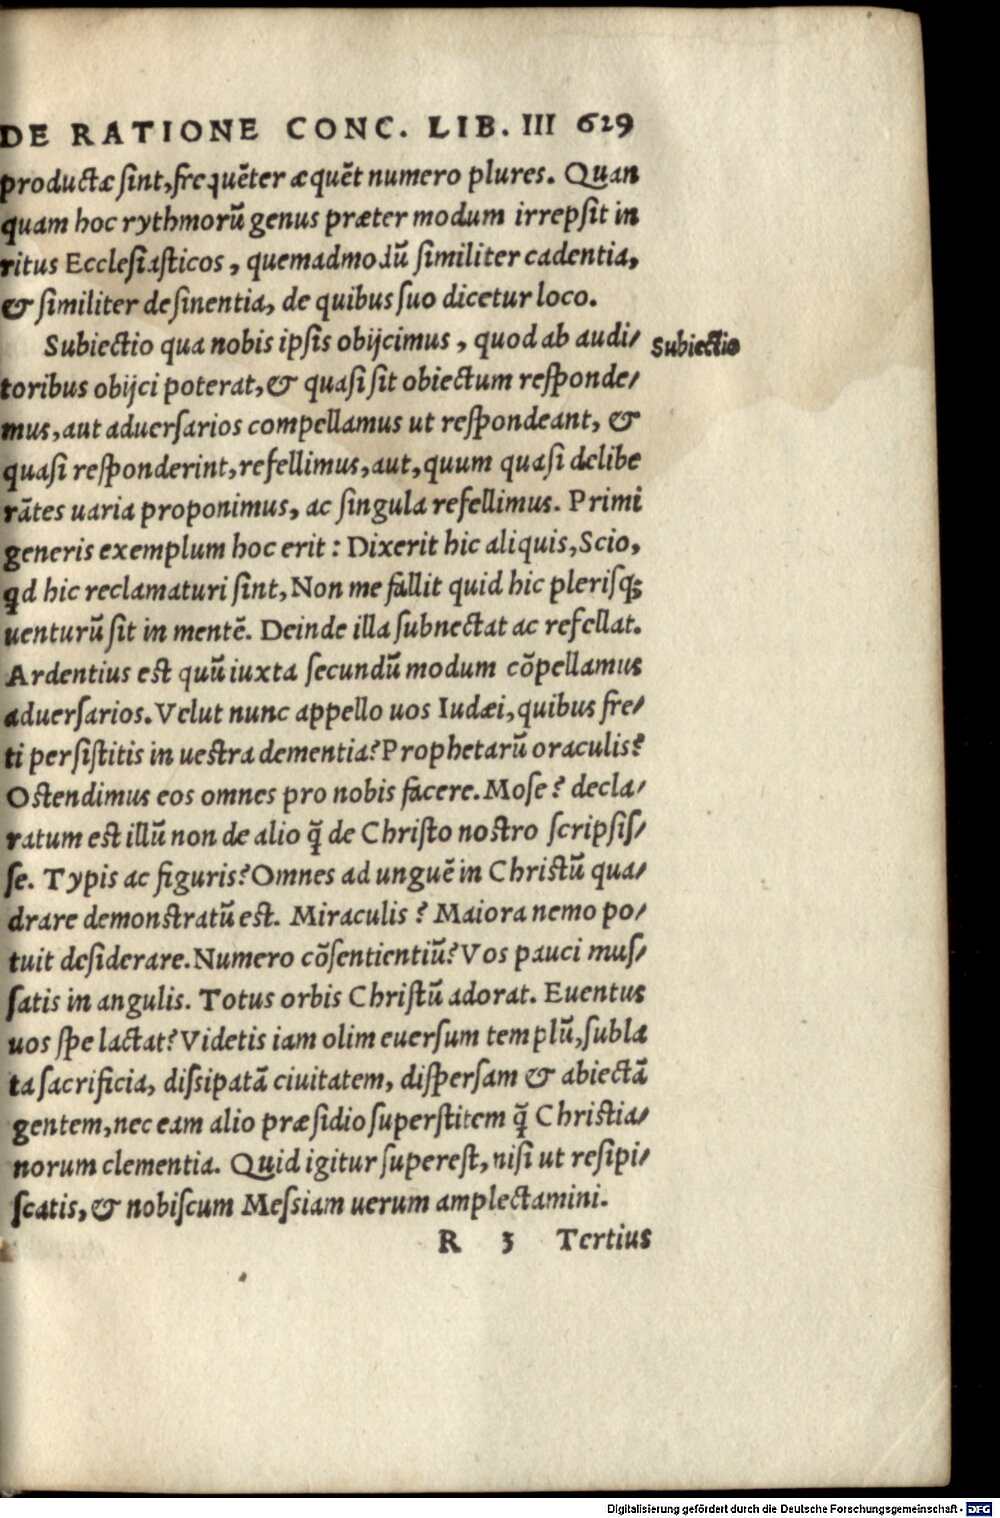 DE RATIONE CONC. LIB. III 629
productæ sint, frequẽter æquẽt numero plures. Quan
quam hoc rythmorũ genus præter modum irrepsit in
ritus Ecclesiasticos, quemadmodũ similiter cadentia,
& similiter desinentia, de quibus suo dicetur loco.
Subiectio qua nobis ipsis obijcimus, quod ab audi/
Subiectio
toribus obijci poterat, & quasi sit obiectum responde/
mus, aut aduersarios compellamus ut respondeant, &
quasi responderint, refellimus, aut, quum quasi delibe
rãtes uaria proponimus, ac singula refellimus. Primi
generis exemplum hoc erit: Dixerit hic aliquis, Scio,
qd hic reclamaturi sint, Non me fallit quid hic plerisq;
uenturũ sit in mentẽ. Deinde illa subnectat ac refellat.
Ardentius est quũ iuxta secundũ modum cõpellamus
aduersarios. Velut nunc appello uos Iudæi, quibus fre/
ti persistitis in uestra dementia? Prophetarũ oraculis?
Ostendimus eos omnes pro nobis facere. Mose? decla/
ratum est illũ non de alio q̃ de Christo nostro scripsis/
se. Typis ac figuris? Omnes ad unguẽ in Christũ qua/
drare demonstratũ est. Miraculis? Maiora nemo po/
tuit desiderare. Numero cõsentientiũ? Vos pauci mus/
satis in angulis. Totus orbis Christũ adorat. Euentus
uos spe lactat? Videtis iam olim euersum templũ, subla
ta sacrificia, dissipatã ciuitatem, dispersam & abiectã
gentem, nec eam alio præsidio superstitem q̃ Christia/
norum clementia. Quid igitur superest, nisi ut resipi/
scatis, & nobiscum Messiam uerum amplectamini.
R 3 Tertius
Digitalisierung gefördert durch die Deutsche Forschungsgemeinschaft - DFG